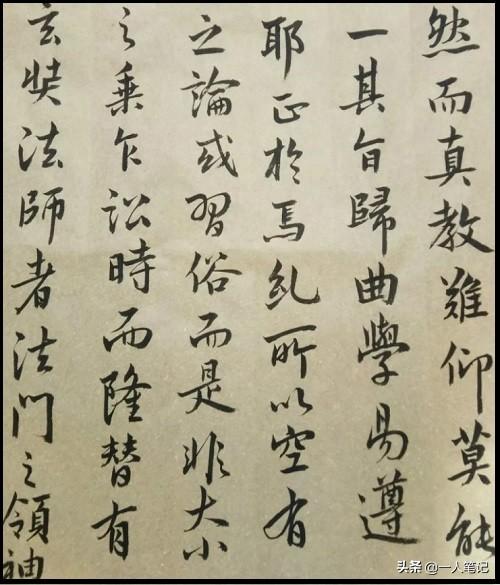 然而真教難仰莫能
一其旨歸曲學易遵
耶正於焉紛糺所以空有
之論或習俗而是非大小
之乗乍訟時而隆替有
玄奘法師者法門之領袖
头条 @一人笔记